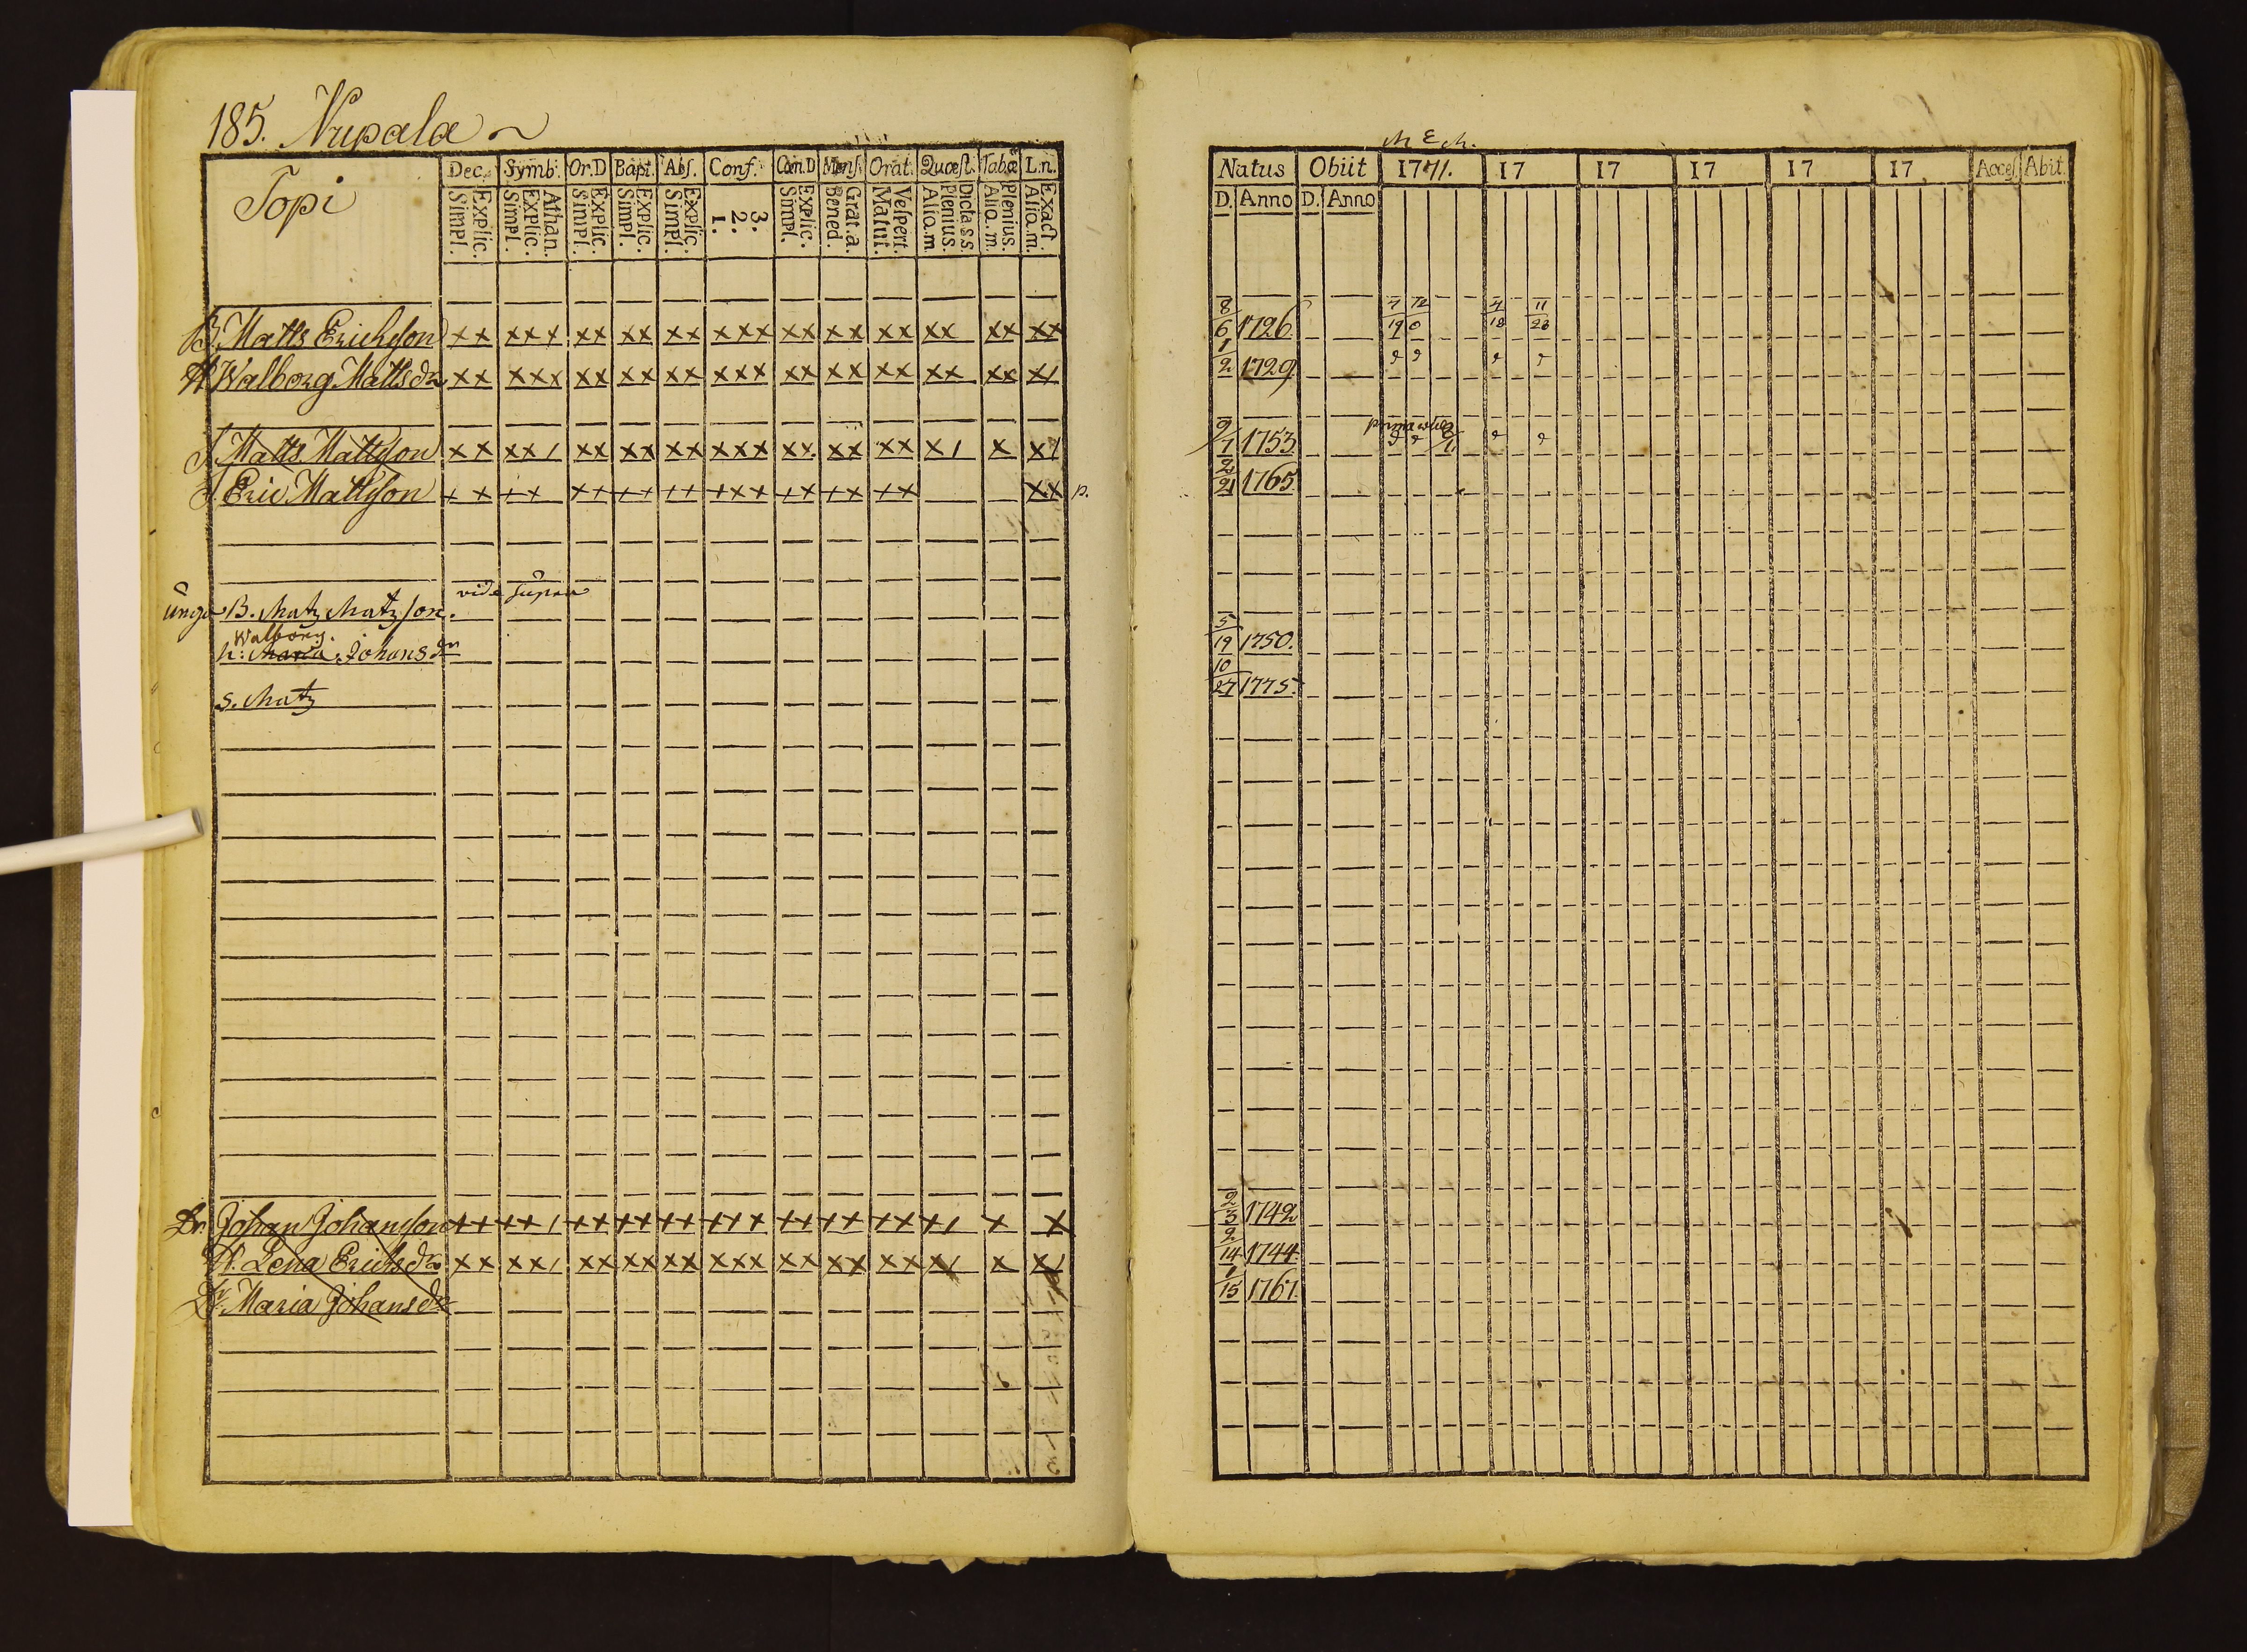 185. Nupala
Topi
Dec. Symb. Or.D Bapt. Abs. Conf. Cœn.D Mens. Orat. Quæst. Tabæ L.n.
Simpl. Explic. Simpl. Explic. Athan. Simpl. Explic. Simpl. Explic. Simpl. Explic. 1. 2. 3. Simpl. Explic. Bened. Grat.a. Matut. Vespert. Aliq.m Plenius. Dicta s.s. Aliq.m. Plenius. Aliq.m. Exact.
B. Matts Erichsson xx xxx xx xx xx xxx xx xx xx xx xx xx
H. Walborg Mattsdr xx xxx xx xx xx xxx xx xx xx xx xx x/
S. Matts Mattsson xx xx/ xx xx xx xxx xx xx xx x/ x x/
S. Eric Mattsson xx xx xx xx xx xxx xx xx xx xx p.
vide supra
unga B. Matz Matzson.
Walborg.
h: Maria Johansdr
s. Matz
Dr. Johan Johansson xx xx/ xx xx xx xxx xx xx xx x/ x x
H. Lena Erichsdr xx xx/ xx xx xx xxx xx xx xx x/ x x/
Dr. Maria Johansdr
M E M.
Natus Obiit 1771. 17 17 17 17 17 Acces Abit
D. Anno D. Anno
8/6 1726. 7/19 4/18 11/23
1/2 1729
9/7 1753
2/21 1765
5/19 1750.
10/27 1775.
2/3 1742
2/14 1744
1/15 1767.